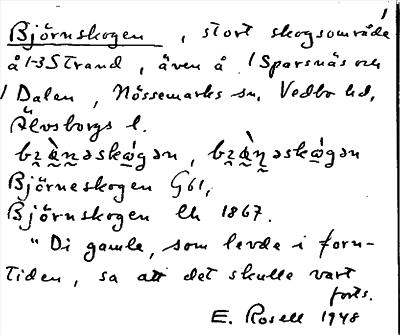 1
Björnskogen, stort skogsområde
å 1-3 Strand, även å 1 Sparsnäs och
1 Dalen, Nössemarks sn, Vedbo hd,
Älvsborgs l.
bẓ̀ä̀ṇəskωgən, bẓ̀ä̀ṇəskωgən
Björneskogen G61,
Björnskogen Ek 1867.
"Di gamle, som levde i forn-
tiden, sa att det skulle vart
forts.
E. Rosell 1948